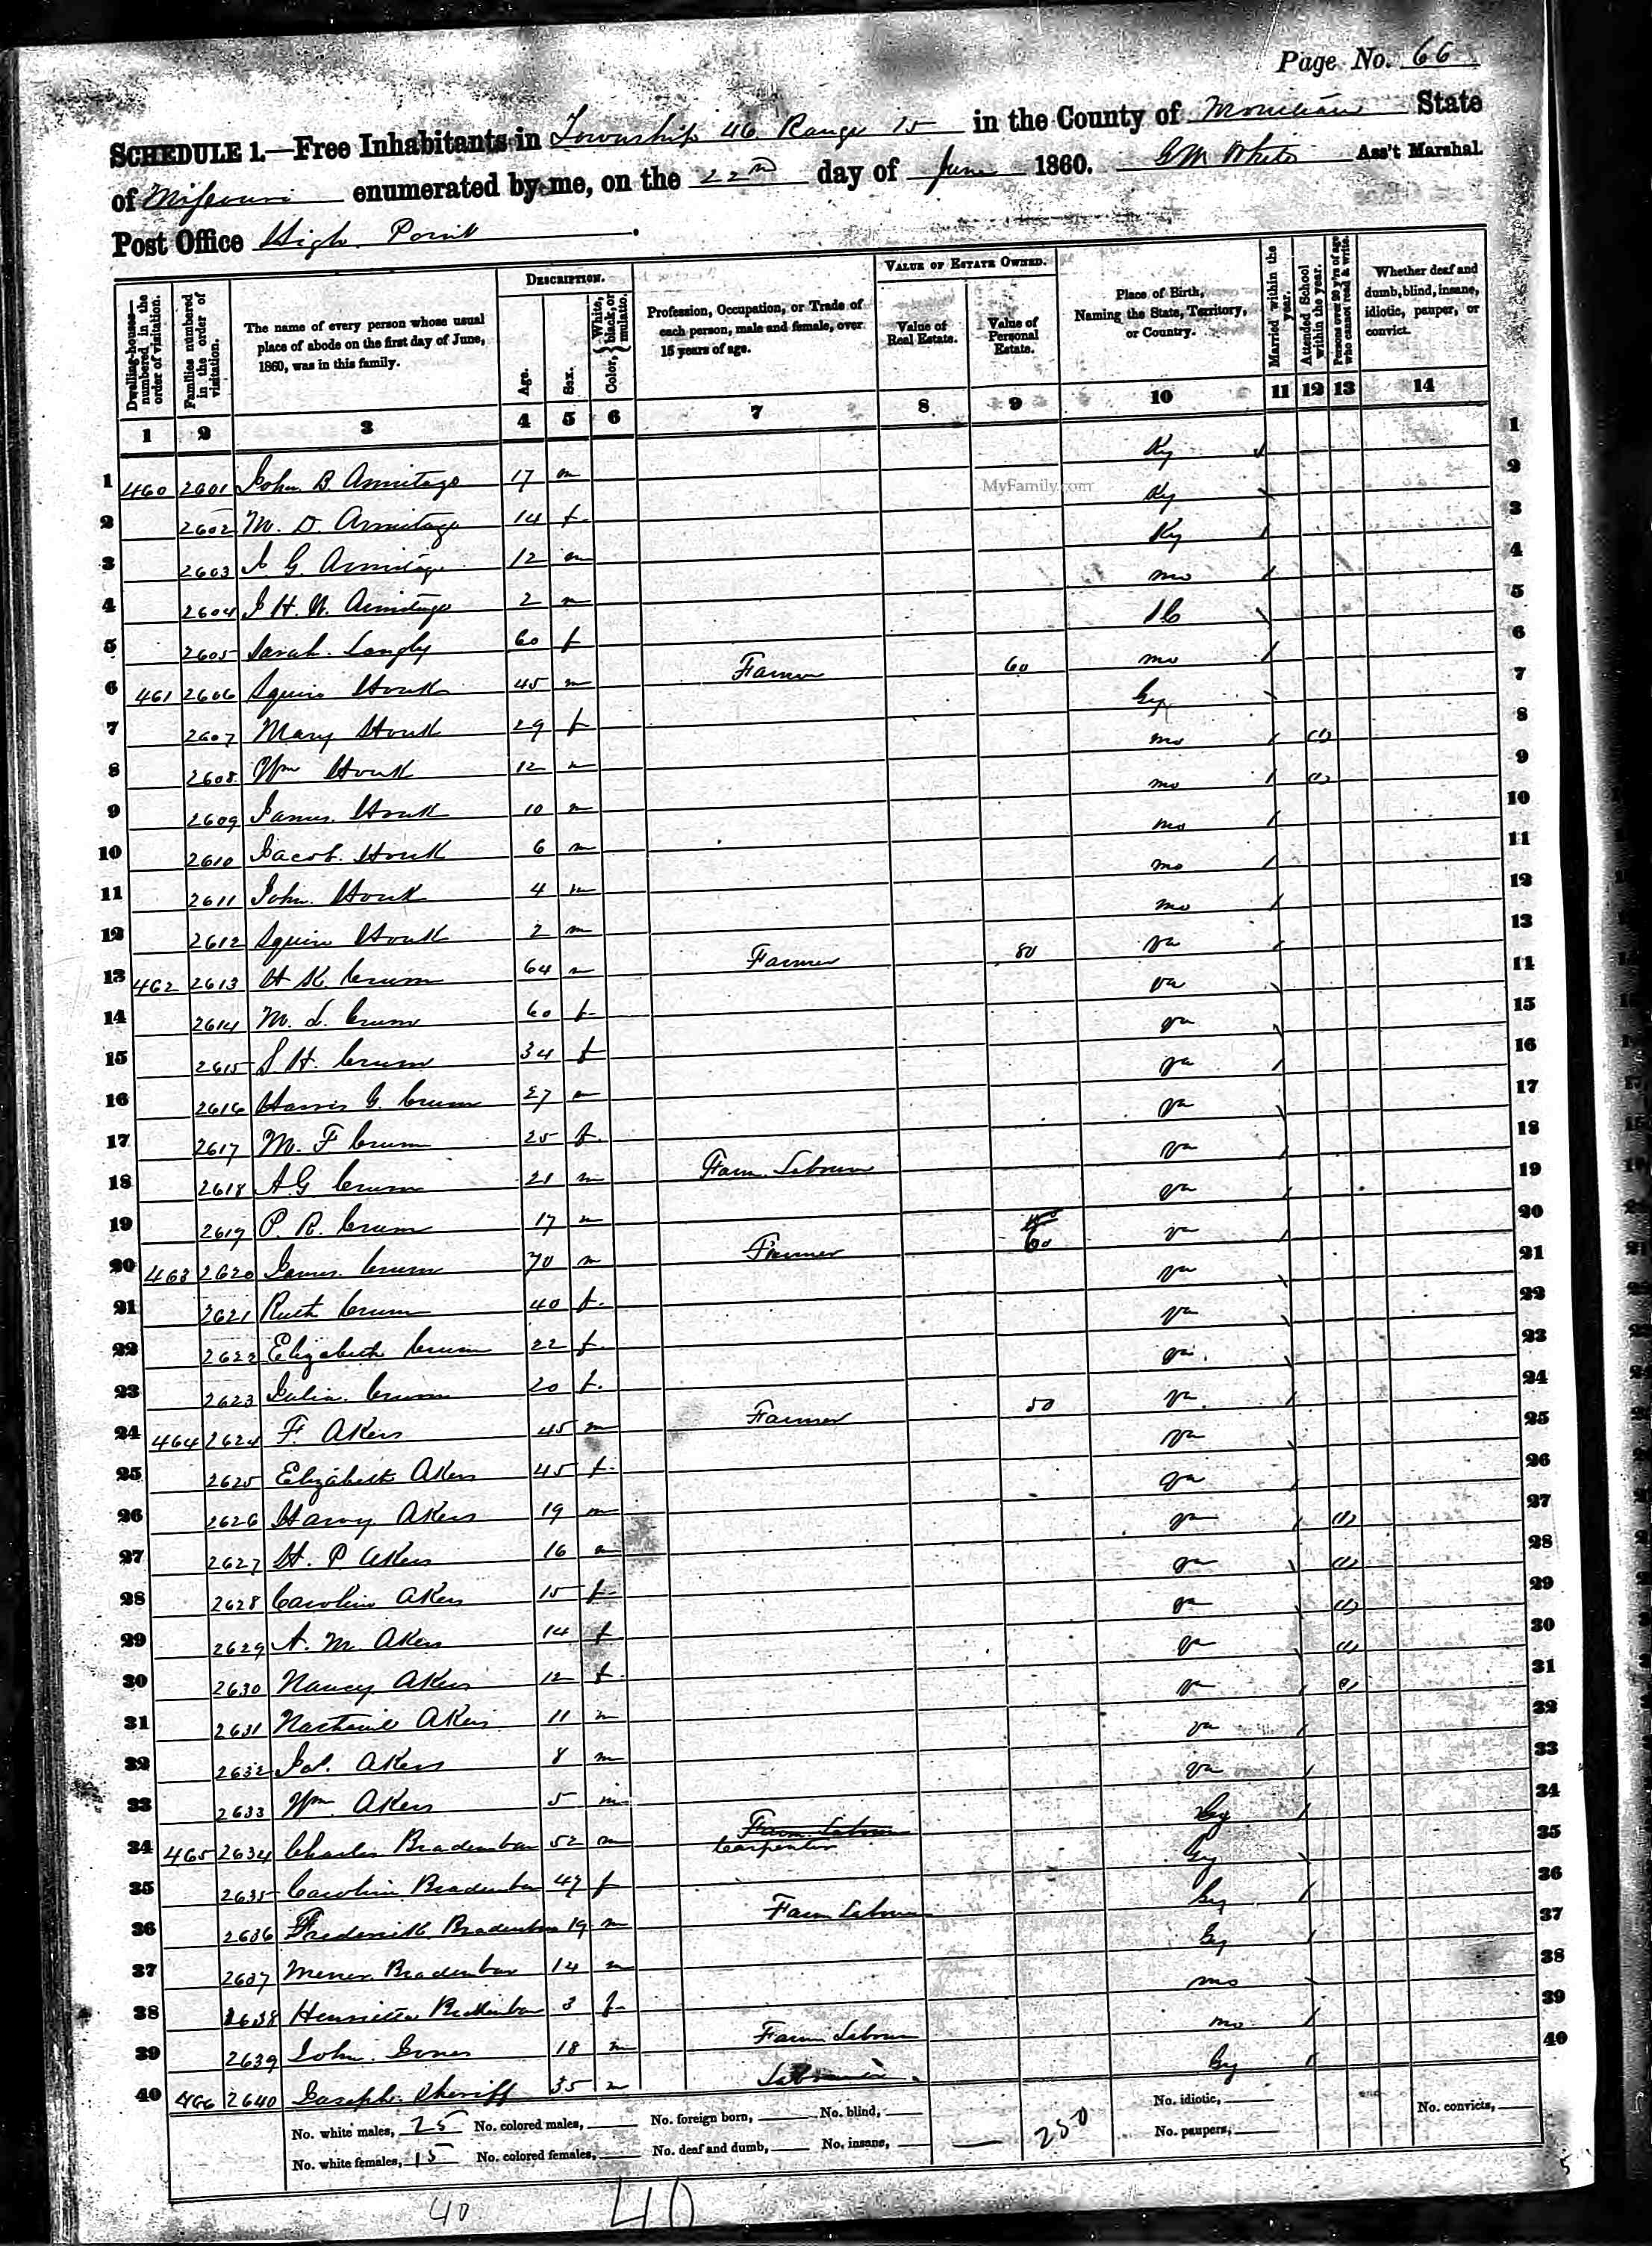 Page No. 66
SCHEDULE 1.—Free Inhabitants in Township 46 Range 15 in the County of State
of Missouri enumerated by me, on the 22nd day of June 1860. G M White Ass't Marshal.
Post Office High Point.
DESCRIPTION. VALUE OF ESTATE OWNED.
Dwelling-houses—numbered in the order of visitation. Families numbered in the order of visitation. The name of every person whose usual place of abode on the first day of June, 1860, was in this family. Age. Sex. Color, White, black, or mulatto. Profession, Occupation, or Trade of each person, male and female, over 15 years of age. Value of Real Estate. Value of Personal Estate. Place of Birth, Naming the State, Territory, or Country. Married within the year. Attended School within the year. Persons over 20 y'rs of age who cannot read & write. Whether deaf and dumb, blind, insane, idiotic, pauper, or convict.
1 2 3 4 5 6 7 8 9 10 11 12 13 14
1 460 2601 John B Armitage 17 m Ky 1
MyFamily.com
2 2602 M. D. Armitage 14 f Ky 2
3 2603 G. Armitage 12 m Ky 3
4 2604 J H. W. Armitage 2 m mo 4
5 2605 Sarah Langly 60 f 5
6 461 2606 Squire Houk 45 m Farmer 60 mo 6
7 2607 Mary Houk 29 f 7
8 2608 Wm Houk 12 m mo (1) 8
9 2609 James Houk 10 m mo (1) 9
10 2610 Jacob Houk 6 m mo 10
11 2611 John Houk 4 m mo 11
12 2612 Squire Houk 2 m mo 12
13 462 2613 H K Crum 64 m Farmer 80 va 13
14 2614 M. L. Crum 60 f va 14
15 2615 S H. Crum 34 f va 15
16 2616 Harris G. Crum 27 m va 16
17 2617 M. F Crum 25 f va 17
18 2618 A G Crum 21 m Farm Laborer va 18
19 2619 P. R. Crum 17 m va 19
20 463 2620 James Crum 70 m Farmer va 20
21 2621 Ruth Crum 40 f va 21
22 2622 Elizabeth Crum 22 f va 22
23 2623 Julia Crum 20 f va 23
24 464 2624 F. Akers 45 m Farmer 50 va 24
25 2625 Elizabeth Akers 45 f va 25
26 2626 Harvy Akers 19 m va 26
27 2627 H. P. Akers 16 m va (1) 27
28 2628 Caroline Akers 15 f va (1) 28
29 2629 A. M. Akers 14 f va (1) 29
30 2630 Nancy Akers 12 f va (1) 30
31 2631 Akers 11 m va (1) 31
32 2632 Akers 8 m va 32
33 2633 Wm. Akers 5 m va 33
34 465 2634 Charles Bradenbau 52 m Farm Laborer Carpenter Gy 34
35 2635 Caroline Bradenbau 47 f Gy 35
36 2636 Frederick Bradenbau 19 m Farm Laborer Gy 36
37 2637 Bradenbau 14 m Gy 37
38 2638 Henrietta Bradenbau 3 f mo 38
39 2639 John Jones 18 m Farm Laborer mo 39
40 466 2640 Joseph Sheriff 35 m Laborer Gy 40
No. white males, 25 No. colored males, No. foreign born, No. blind, No. idiotic, No. convicts,
No. white females, 15 No. colored females, No. deaf and dumb, No. insane, 250 No. paupers,
40 40